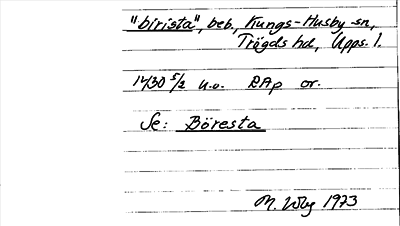 "birista", beb., Kungs-Husby sn,
Trögds hd, Upps. l.
1430 5/2 u.o. RAp or.
Se: Böresta
M. Wbg 1973